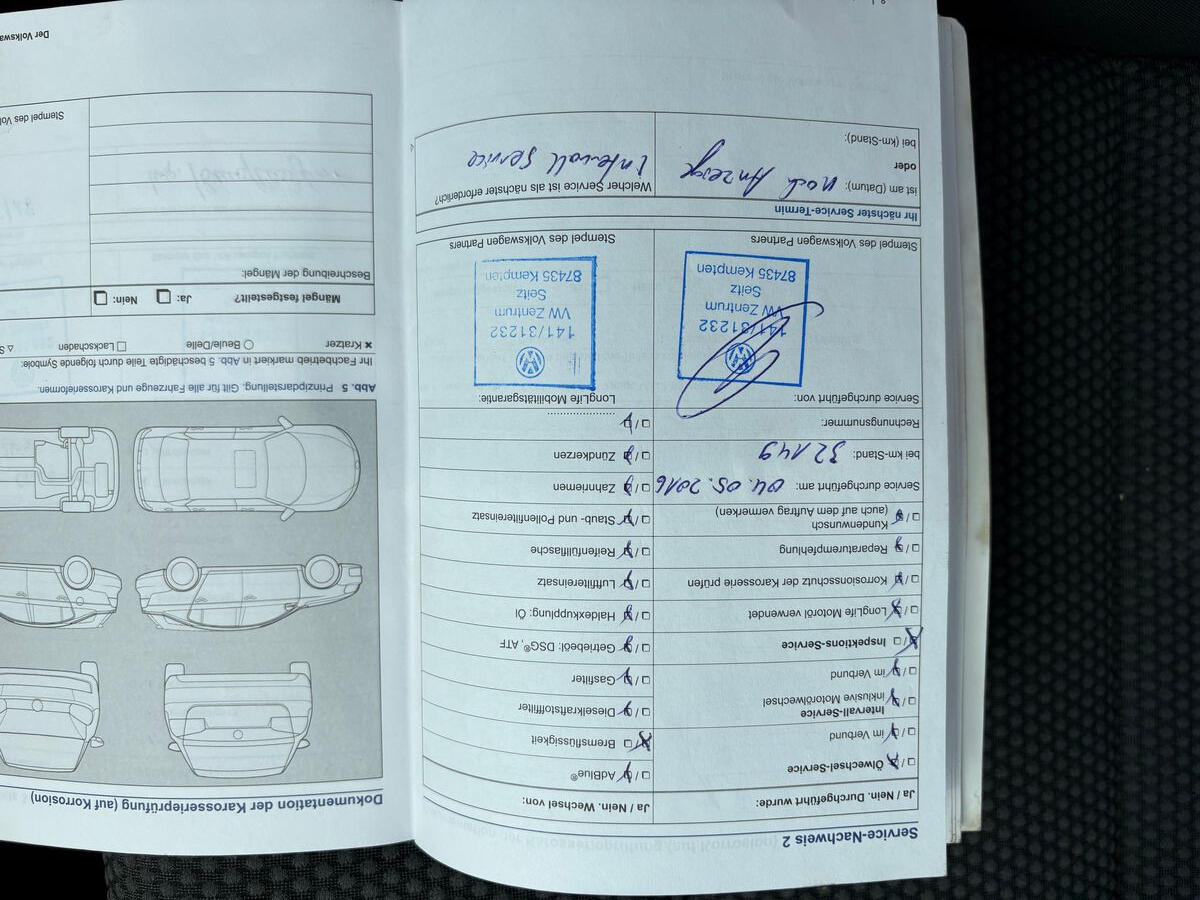 Service-Nachweis 2
Ja / Nein. Durchgeführt wurde:
Ölwechsel-Service
im Verbund
Intervall-Service
inklusive Motorölwechsel
im Verbund
Inspektions-Service
LongLife Motoröl verwendet
Korrosionsschutz der Karosserie prüfen
Reparaturempfehlung
Kundenwunsch
(auch auf dem Auftrag vermerken)
Service durchgeführt am: 04.05.2016
bei km-Stand: 32149
Rechnungsnummer:
Service durchgeführt von:
141/31232
VW Zentrum
Seitz
87435 Kempten
Stempel des Volkswagen Partners
Ja / Nein. Wechsel von:
AdBlue®
Bremsflüssigkeit
Dieselkraftstofffilter
Gasfilter
Getriebeöl: DSG®, ATF
Haldexkupplung: Öl
Luftfiltereinsatz
Reifenfüllflasche
Staub- und Pollenfiltereinsatz
Zahnriemen
Zündkerzen
LongLife Mobilitätsgarantie:
141/31232
VW Zentrum
Seitz
87435 Kempten
Stempel des Volkswagen Partners
Ihr nächster Service-Termin
ist am (Datum): nach Anzeige
oder
bei (km-Stand):
Welcher Service ist als nächster erforderlich?
Intervall Service
Dokumentation der Karosserieprüfung (auf Korrosion)
Abb. 5 Prinzipdarstellung: Gilt für alle Fahrzeuge und Karosserieformen.
Ihr Fachbetrieb markiert in Abb. 5 beschädigte Teile durch folgende Symbole:
Kratzer
Beule/Delle
Lackschaden
Mängel festgestellt? Ja: Nein:
Beschreibung der Mängel:
Stempel des Vol
Der Volkswa